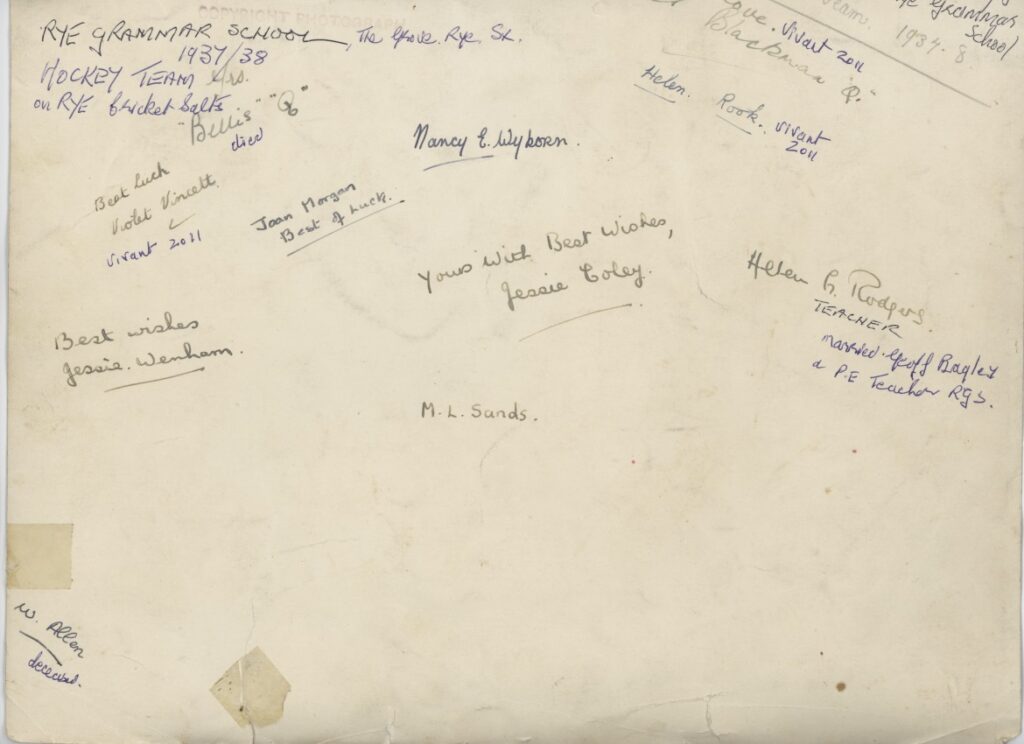 COPYRIGHT PHOTOGRAPH
RYE GRAMMAR SCHOOL, The Grove, Rye, Sx.
1937/38
HOCKEY TEAM
on RYE Cricket Salts
"Bellis"
died
Love. Vivant 2011
Blackman
team. 1937.8
Grammar
School
Helen Rook. Vivant
2011
Nancy E. Wyborn.
Best Luck
Violet Vincett.
Vivant 2011
Joan Morgan
Best of Luck.
Yours With Best Wishes,
Jessie Coley.
Helen G. Rodgers.
TEACHER
married Geoff Bagley
a P.E Teacher RGS.
Best wishes
Jessie. Wenham.
M. L. Sands.
W. Allen
deceased.